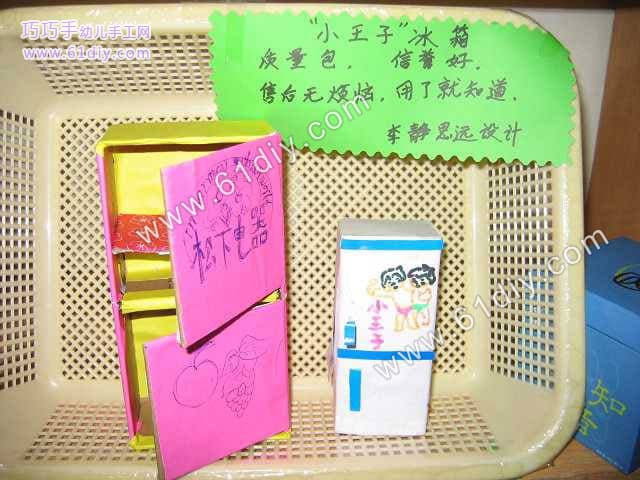 巧巧手幼儿手工网
www.61diy.com
"小王子"冰箱
质量包，信誉好.
售后无烦恼，用了就知道.
李静思远设计
www.61diy.com
松下电器
www.61diy.com
小王子
知